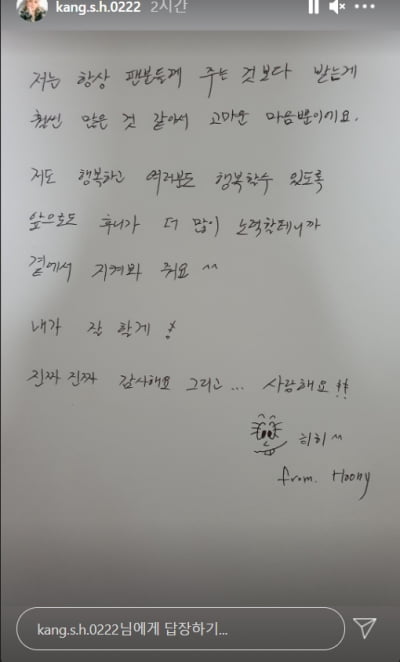 kang.s.h.0222 2시간
저는 항상 팬분들께 주는 것보다 받는게
훨씬 많은 것 같아서 고마운 마음뿐이에요.
저도 행복하고 여러분도 행복할수 있도록
앞으로도 후니가 더 많이 노력할테니까
곁에서 지켜봐 줘요 ^^
내가 잘 할게!
진짜 진짜 감사해요 그리고... 사랑해요!!
히히^^
from. Hoony
kang.s.h.0222님에게 답장하기...